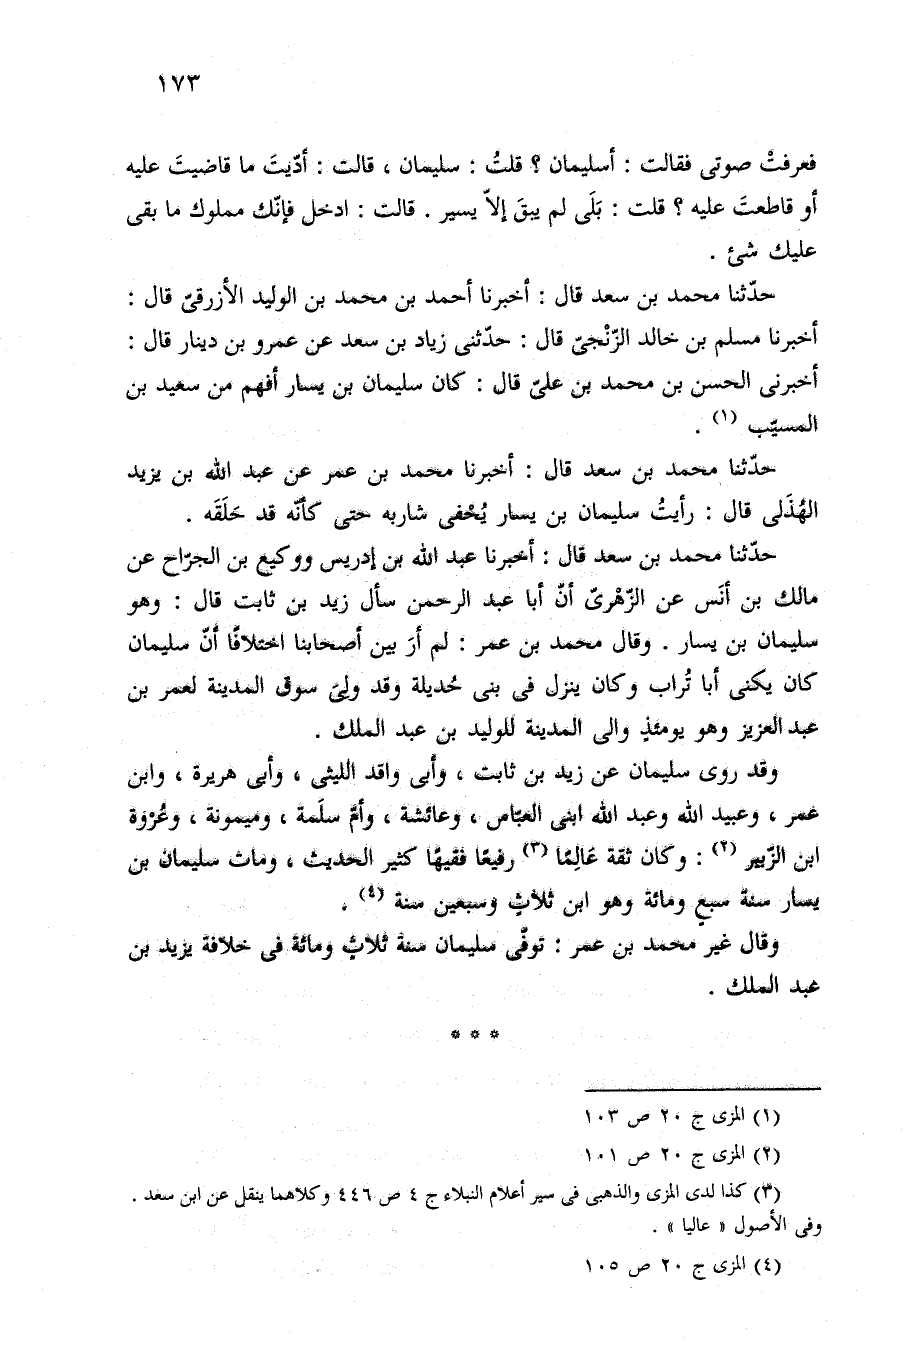 ١٧٣
فعرفتْ صوتى فقالت : أسليمان ؟ قلتُ : سليمان ، قالت : أدّيتَ ما قاضيتَ عليه
أو قاطعتَ عليه ؟ قلت : بَلَى لم يبقَ إلاّ يسير . قالت : ادخل فإنّك مملوك ما بقى
عليك شئ .
حدّثنا محمد بن سعد قال : أخبرنا أحمد بن محمد بن الوليد الأزرقىّ قال :
أخبرنا مسلم بن خالد الزّنْجىّ قال : حدّثنى زياد بن سعد عن عمرو بن دينار قال :
أخبرنى الحسن بن محمد بن علىّ قال : كان سليمان بن يسار أفهم من سعيد بن
المسيّب (١) .
حدّثنا محمد بن سعد قال : أخبرنا محمد بن عمر عن عبد الله بن يزيد
الهُذَلى قال : رأيتُ سليمان بن يسار يُحْفى شاربه حتى كأنّه قد حَلَقَه .
حدّثنا محمد بن سعد قال : أخبرنا عبد الله بن إدريس ووكيع بن الجرّاح عن
مالك بن أنَس عن الزّهْرىّ أنّ أبا عبد الرحمن سأل زيد بن ثابت قال : وهو
سليمان بن يسار . وقال محمد بن عمر : لم أرَ بين أصحابنا اختلافًا أنّ سليمان
كان يكنى أبا تُراب وكان ينزل فى بنى حُديلة وقد ولىَ سوق المدينة لعمر بن
عبد العزيز وهو يومئذٍ والى المدينة للوليد بن عبد الملك .
وقد روى سليمان عن زيد بن ثابت ، وأبى واقد الليثى ، وأبى هريرة ، وابن
عمر ، وعبيد الله وعبد الله ابنى العبّاس ، وعائشة ، وأمّ سلَمة ، وميمونة ، وعُرْوة
ابن الزّبير (٢) : وكان ثقة عَالِمًا (٣) رفيعًا فقيهًا كثير الحديث ، ومات سليمان بن
يسار سنة سبعٍ ومائة وهو ابن ثلاثٍ وسبعين سنة (٤) .
وقال غير محمد بن عمر : توفّى سليمان سنة ثلاثٍ ومائة فى خلافة يزيد بن
عبد الملك .
* * *
(١) المزى ج ٢٠ ص ١٠٣
(٢) المزى ج ٢٠ ص ١٠١
(٣) كذا لدى المزى والذهبى فى سير أعلام النبلاء ج ٤ ص ٤٤٦ وكلاهما ينقل عن ابن سعد .
وفى الأصول « عاليا » .
(٤) المزى ج ٢٠ ص ١٠٥